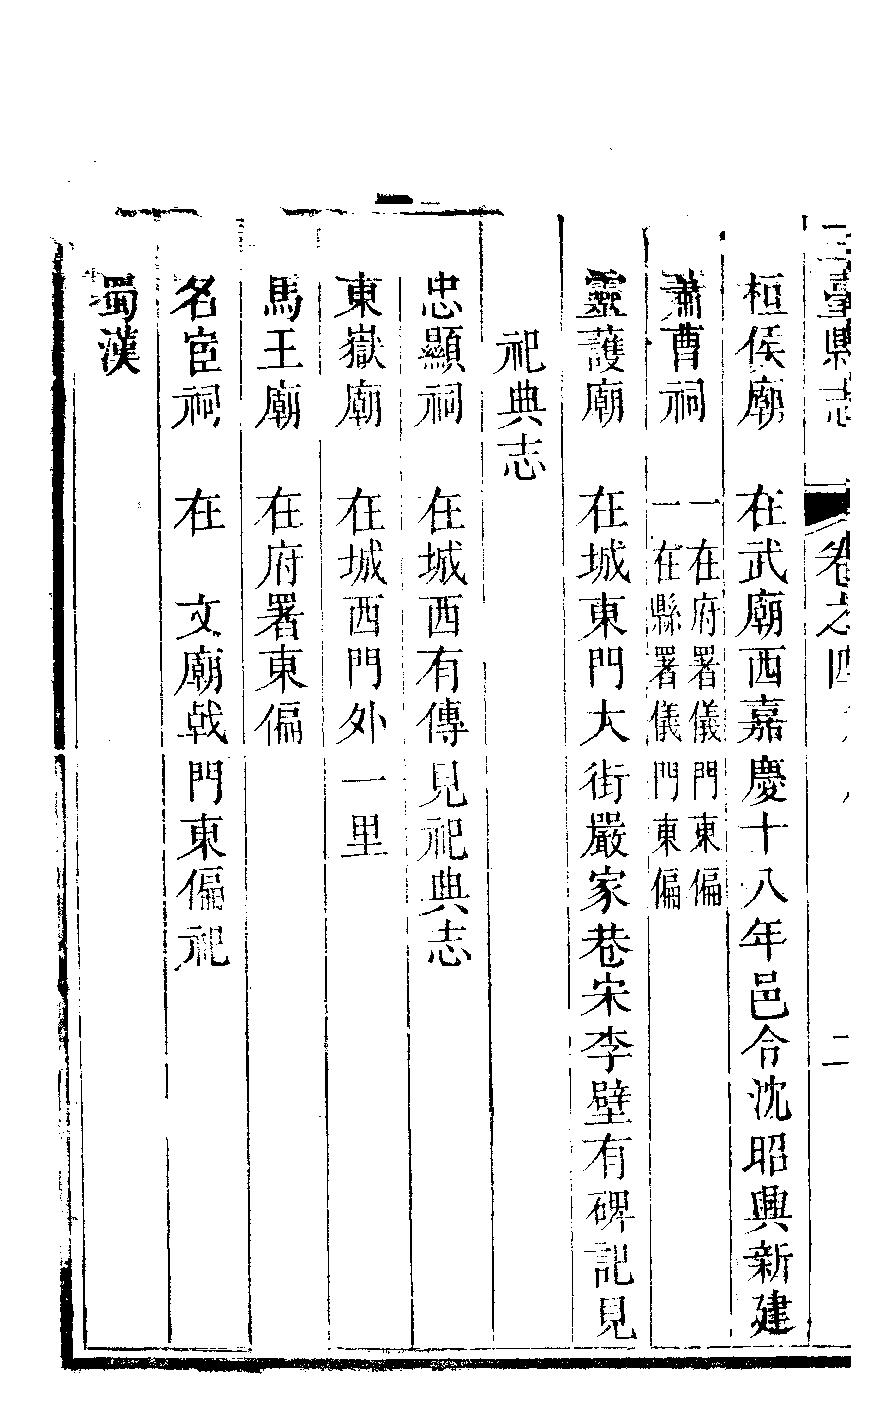 三臺縣志 卷之四 二
桓侯廟 在武廟西嘉慶十八年邑令沈昭興新建
蕭曹祠 一在府署儀門東偏
一在縣署儀門東偏
靈護廟 在城東門大街嚴家巷宋李壁有碑記見
祀典志
忠顯祠 在城西有傳見祀典志
東嶽廟 在城西門外一里
馬王廟 在府署東偏
名宦祠 在 文廟戟門東偏祀
蜀漢